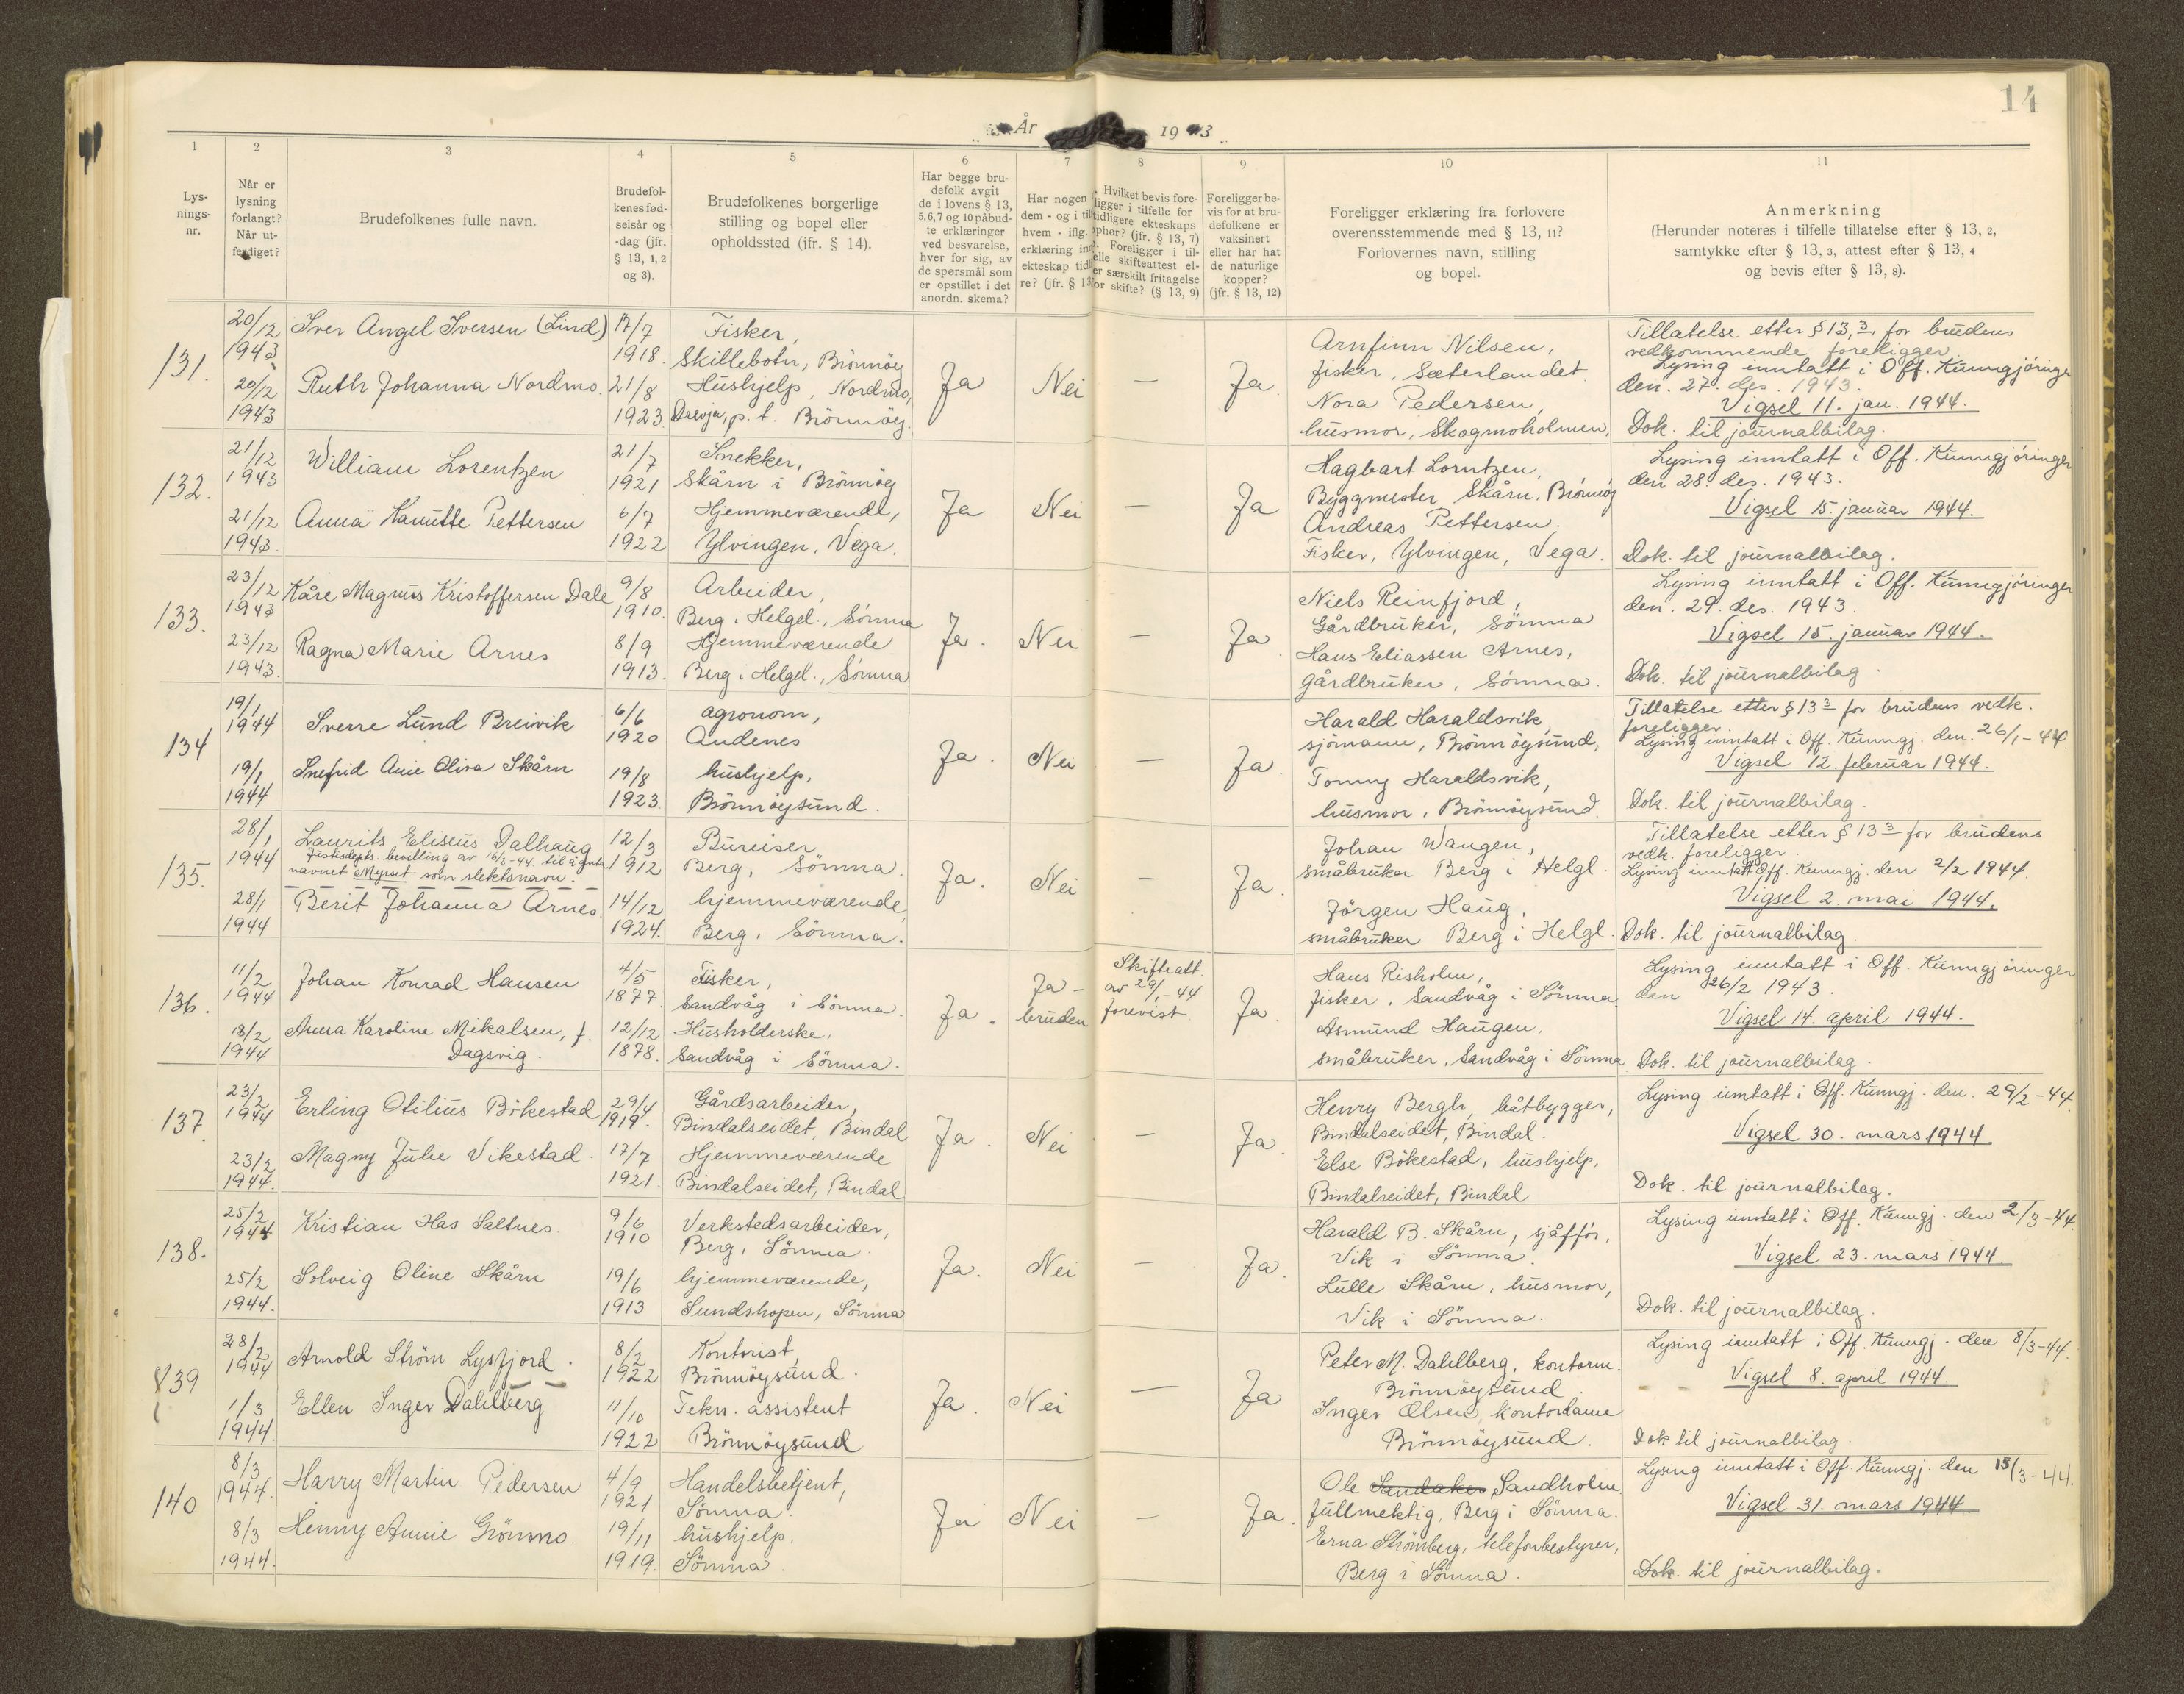 14
År 1943
1
2
3
4
5
6
7
8
9
10
11
Lys-
nings-
nr.
Når er
lysning
forlangt?
Når ut-
ferdiget?
Brudefolkenes fulle navn.
Brudefol-
kenes fød-
selsår og
-dag (jfr.
§ 13, 1, 2
og 3).
Brudefolkenes borgerlige
stilling og bopel eller
opholdssted (ifr. § 14).
Har begge bru-
defolk avgit
de i lovens § 13,
5, 6, 7 og 10 påbud-
te erklæringer
ved besvarelse,
hver for sig, av
de spørsmål som
er opstillet i det
anordn. skema?
Har nogen
dem - og i til
hvem - iflg.
erklæring in
ekteskap tid
re? (jfr. § 13
Hvilket bevis fore-
ligger i tilfelle for
tidligere ekteskaps
ophør? (jfr. § 13, 7)
Foreligger i til-
elle skifteattest el-
er særskilt fritagelse
for skifte? (§ 13, 9)
Foreligger be-
vis for at bru-
defolkene er
vaksinert
eller har hat
de naturlige
kopper?
(jfr. § 13, 12)
Foreligger erklæring fra forlovere
overensstemmende med § 13, 11?
Forlovernes navn, stilling
og bopel.
Anmerkning
(Herunder noteres i tilfelle tillatelse efter § 13, 2,
samtykke efter § 13, 3, attest efter § 13, 4
og bevis efter § 13, 8).
131.
20/12
1943
Iver Angel Iversen (Lind)
17/7
1918.
Fisker,
Skillebotn, Brönnöy
20/12
1943
Ruth Johanna Nordmo.
21/8
1923.
Hushjelp, Nordmo,
Drevja, p.t. Brönnöy.
Ja
Nei
—
Ja.
Arnfinn Nilsen,
fisker, Sæterlandet.
Nora Pedersen,
husmor, Skogmoholmen.
Tillatelse etter § 13, 3, for brudens
vedkommende foreligger.
Lysing inntatt i Off. Kunngjöringer
den. 27. des. 1943.
Vigsel 11. jan. 1944.
Dok. til journalbilag.
132.
21/12
1943
William Lorentzen
21/7
1921
Snekker,
Skårn i Brönnöy
21/12
1943.
Anna Hanutte Pettersen
6/7
1922
Hjemmeværende,
Ylvingen, Vega.
Ja
Nei
—
Ja
Hagbart Lorntzen,
Byggmester, Skårn, Brönnöy
Andreas Pettersen.
Fisker, Ylvingen, Vega.
Lysing inntatt i Off. Kunngjöringer
den 28. des. 1943.
Vigsel 15. januar 1944.
Dok. til journalbilag.
133.
23/12
1943
Kåre Magnus Kristoffersen Dale
9/8
1910.
Arbeider,
Berg i Helgel., Sömna
23/12
1943.
Ragna Marie Arnes
8/9
1913.
Hjemmeværende
Berg i Helgel., Sömna
Ja.
Nei
—
Ja.
Niels Reinfjord,
Gårdbruker, Sömna
Hans Eliassen Arnes,
gårdbruker, Sömna.
Lysing inntatt i Off. Kunngjöringer
den. 29. des. 1943.
Vigsel 15. januar 1944.
Dok. til journalbilag.
134
19/1
1944
Sverre Lund Breivik
6/6
1920
agronom,
Andenes
19/1
1944
Snefrid Anie Oliva Skårn
19/8
1923.
hushjelp,
Brönnöysund.
Ja.
Nei
—
Ja.
Harald Haraldsvik,
sjömann, Brönnöysund,
Tommy Haraldsvik,
husmor, Brönnöysund.
Tillatelse etter § 13 3 for brudens vedk.
foreligger.
Lysing inntatt i Off. Kunngj. den. 26/1-44.
Vigsel 12. februar 1944.
Dok. til journalbilag.
135.
28/1
1944
Laurits Eliseus Dalhaug
Justisdepts. bevilling av 16/2-44 til å
navnet Myrset som slektsnavn.
12/3
1912
Bureiser
Berg, Sömna.
28/1
1944
Berit Johanna Arnes.
14/12
1924.
hjemmeværende,
Berg, Sömna.
Ja.
Nei
—
Ja.
Johan Wangen,
småbruker Berg i Helgl.
Jörgen Haug,
småbruker Berg i Helgl.
Tillatelse etter § 13 3 for brudens
vedk. foreligger.
Lysing inntatt Off. Kunngj. den 2/2 1944.
Vigsel 2. mai 1944.
Dok. til journalbilag.
136.
11/2
1944
Johan Konrad Hansen
4/5
1877.
Fisker,
Sandvåg i Sömna.
18/2
1944
Anna Karoline Mikalsen, f.
Dagsvig.
12/12
1878.
Husholderske,
Sandvåg i Sömna.
Ja.
Ja -
bruden
Skifteatt.
av 29/1-44
forevist
Ja.
Hans Risholm,
fisker, Sandvåg i Sömna
Asmund Haugen,
småbruker, Sandvåg i Sömna.
Lysing inntatt i Off. Kunngjöringer
den 26/2 1943.
Vigsel 14. april 1944.
Dok. til journalbilag.
137.
23/2
1944
Erling Otilius Bökestad
29/4
1919.
Gårdsarbeider,
Bindalseidet, Bindal
23/2
1944.
Magny Julie Vikestad.
17/7
1921.
Hjemmeværende
Bindalseidet, Bindal
Ja.
Nei
—
Ja.
Henry Bergh, båtbygger,
Bindalseidet, Bindal.
Else Bökestad, hushjelp,
Bindalseidet, Bindal
Lysing inntatt i Off. Kunngj. den. 29/2-44.
Vigsel 30. mars 1944
Dok. til journalbilag.
138.
25/2
1944
Kristian Has Saltnes.
9/6
1910
Verkstedsarbeider,
Berg, Sömna.
25/2
1944.
Solveig Oline Skårn
19/6
1913
hjemmeværende,
Sundshopen, Sömna
Ja.
Nei
—
Ja.
Harald B. Skårn, sjåffór,
Vik i Sömna.
Lulle Skårn, husmor,
Vik i Sömna.
Lysing inntatt i Off. Kunngj. den 2/3-44.
Vigsel 23. mars 1944.
Dok. til journalbilag.
139
28/2
1944
Arnold Ström Lysfjord.
8/2
1922
Kontorist,
Brönnöysund.
1/3
1944.
Ellen Inger Dahlberg
11/10
1922
Tekn. assistent
Brönnöysund
Ja.
Nei
—
Ja
Peter M. Dahlberg, kontorm.
Brönnöysund.
Inger Olsen, kontordame
Brönnöysund.
Lysing inntatt i Off. Kunngj. den 8/3-44.
Vigsel 8. april 1944.
Dok til journalbilag.
140
8/3
1944.
Harry Martin Pedersen
4/9
1921
Handelsbetjent,
Sömna.
8/3
1944.
Henny Annie Grönmo.
19/11
1919.
hushjelp,
Sömna.
Ja
Nei
—
Ja.
Ole Sandaker Sandholm.
fullmektig, Berg i Sömna.
Erna Strömberg, telefonbestyrer,
Berg i Sömna.
Lysing inntatt i Off. Kunngj. den 15/3-44.
Vigsel 31. mars 1944
Dok. til journalbilag.